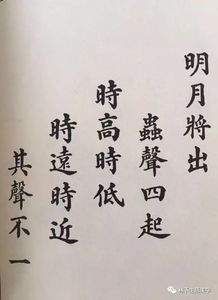 明月將出
蟲聲四起
時高時低
時遠時近
其聲不一